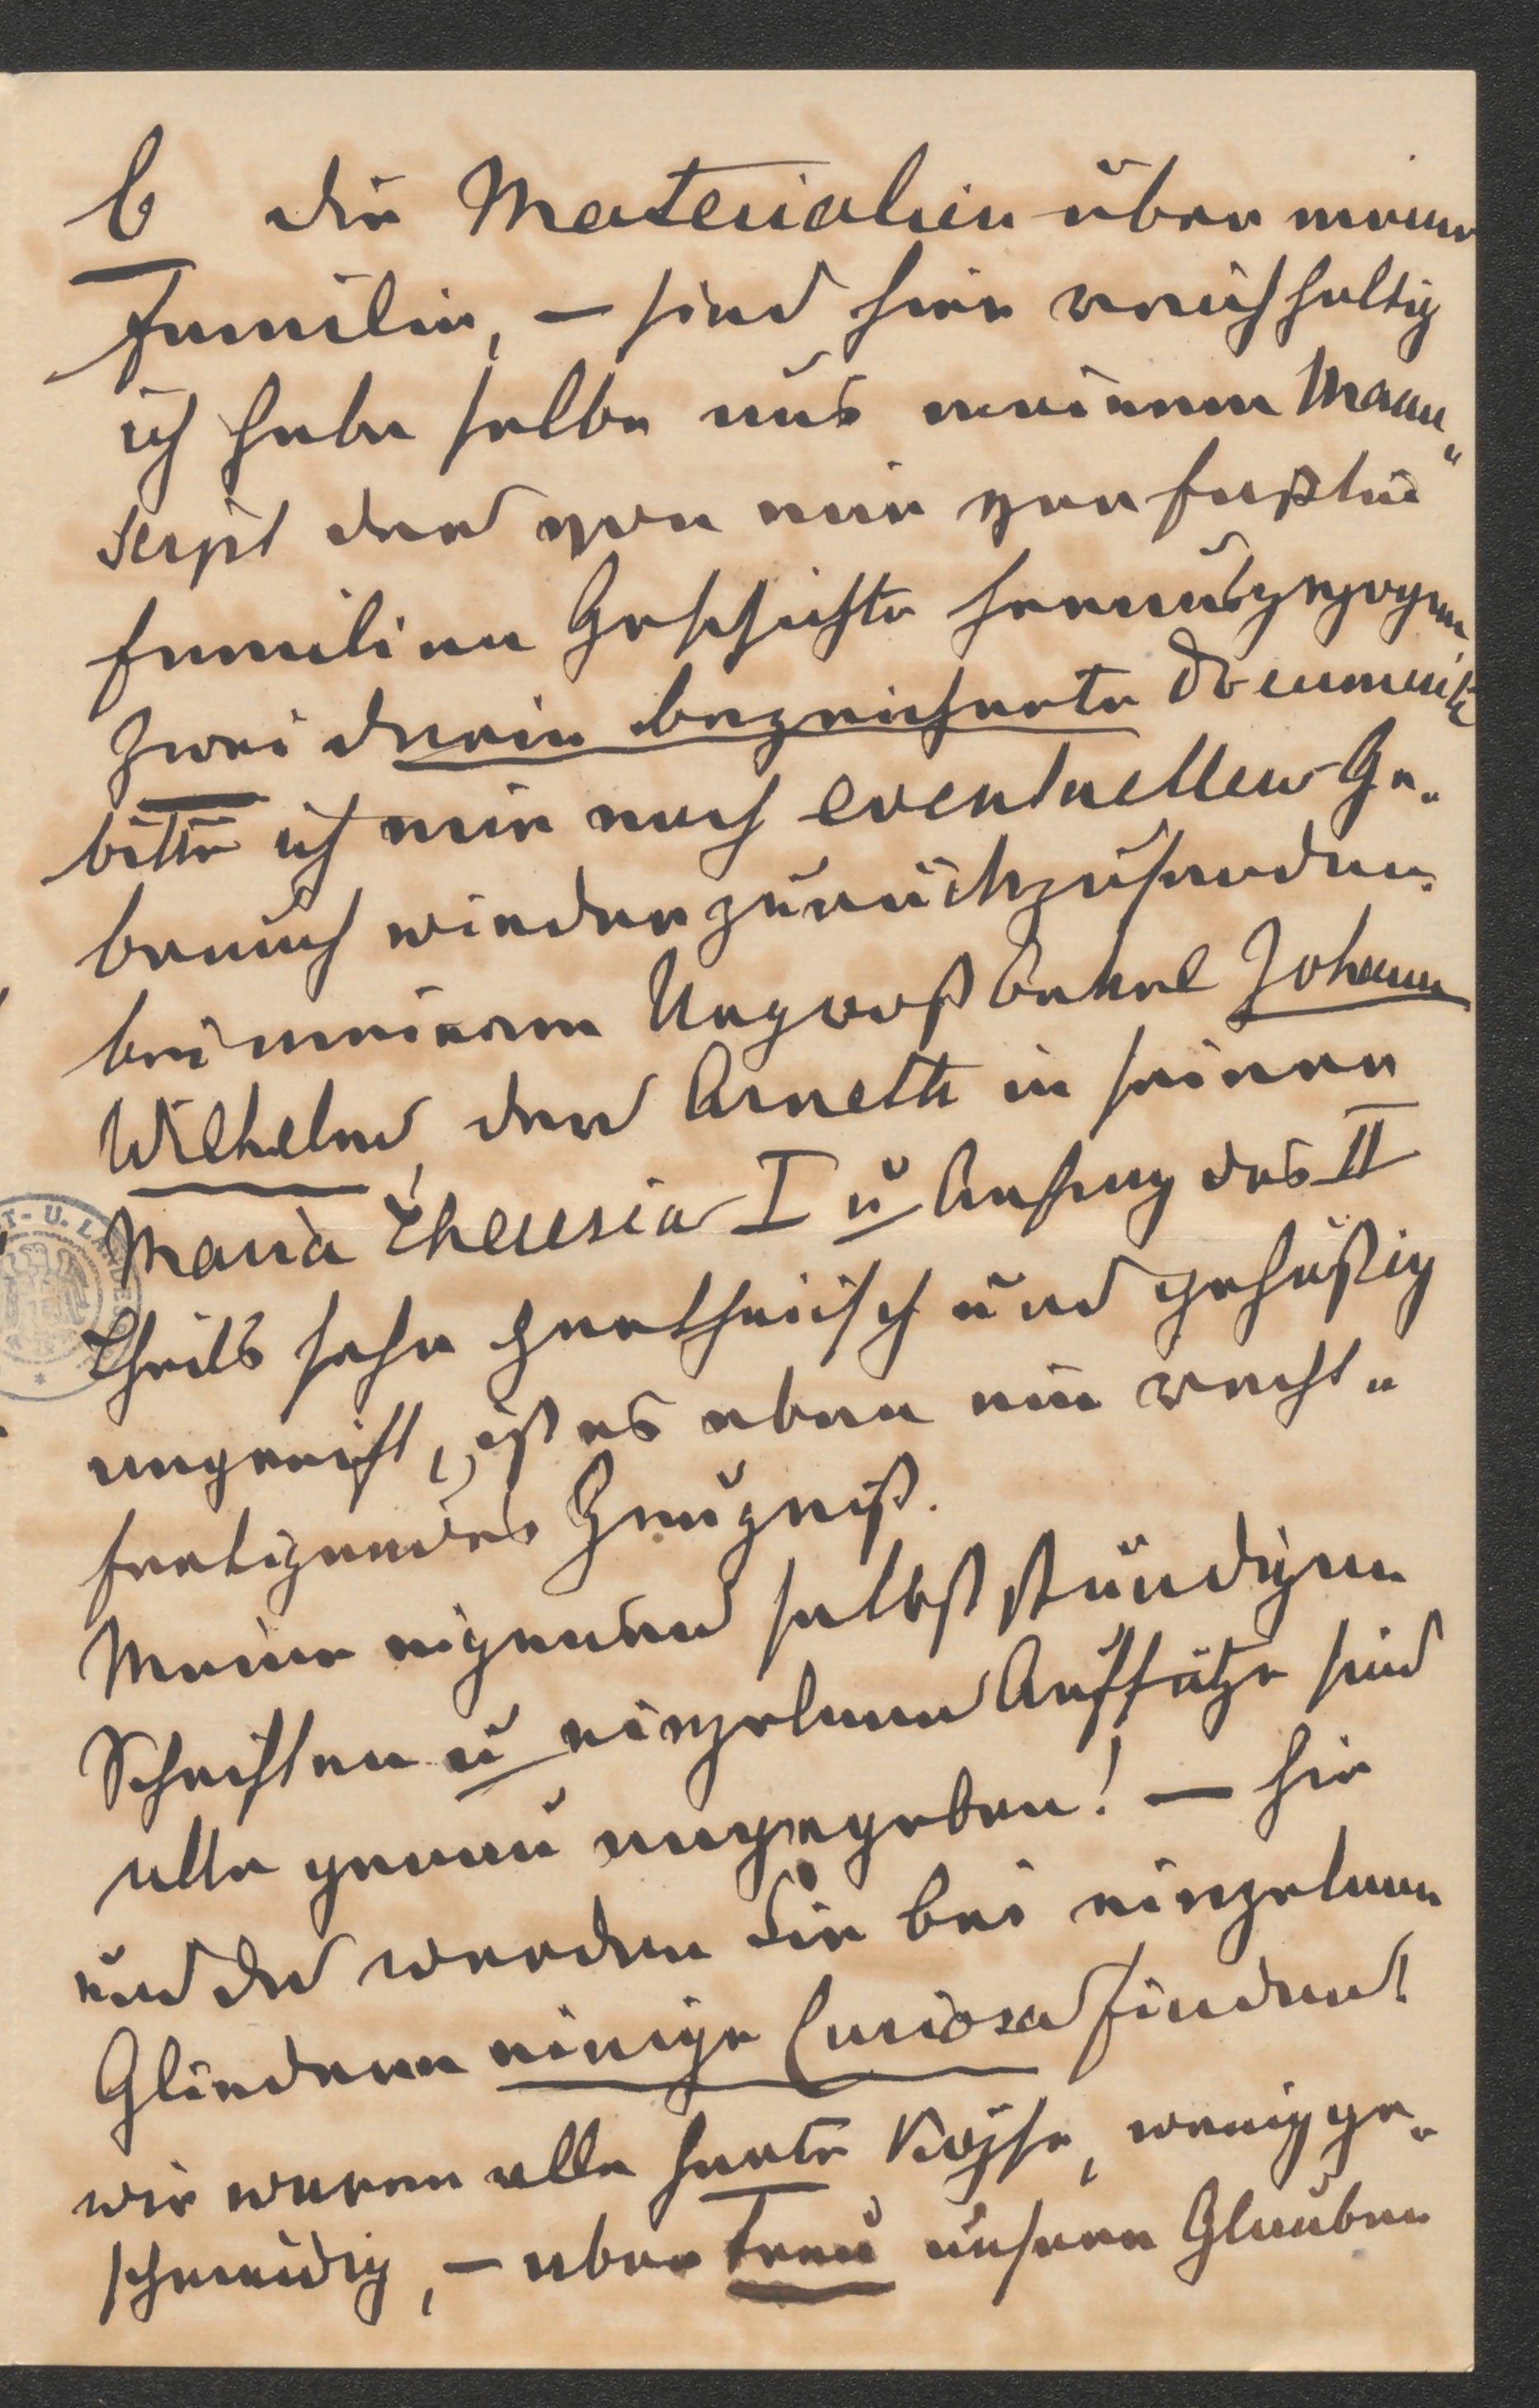 b die Materialien über meine
Familie, – sind hier reichhaltig
ich habe selbe aus meinem Manu„
script der von mir verfaßten
Familien Geschichte herausgezogen
Zwei darin bezeichnete Documente
bitte ich mir nach eventuellen Ge„
brauch wieder zurückzusenden.
bei meinem Urgroßonkel Johann
Wilhelm, den Arneth in seiner
Maria Theresia I u Anfang des II
Theils sehr partheiisch und gehäßig
angreift, ist es eben ein recht„
fertigendes Zeugniß.
Meine eigenen selbstständigen
Schriften u einzelnen Aufsätze sind
alle genau angegeben! – hie
und da werden Sie bei einzelnen
Gliedern einige Curiosa finden!
wir waren alle harte Köpfe, wenig ge„
schmeidig, – aber treu unserm Glauben